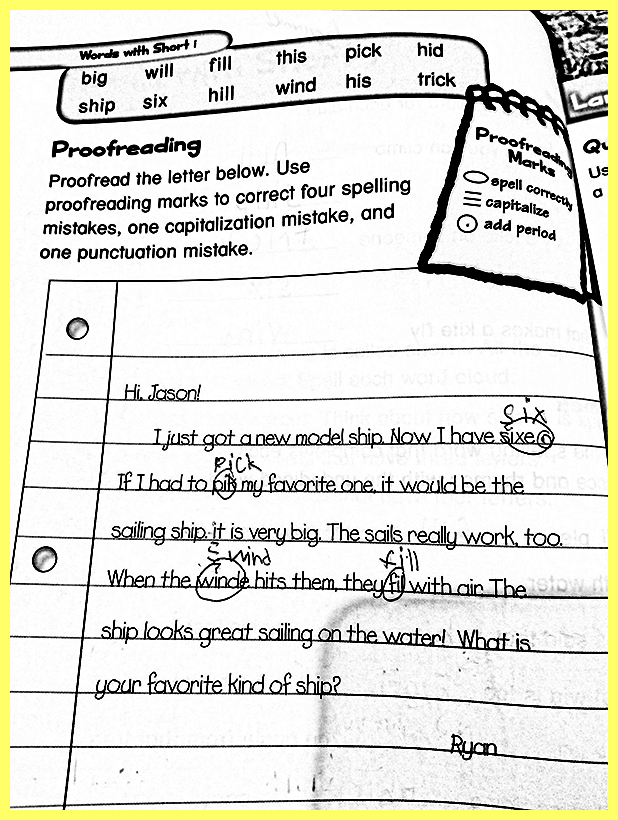 Words with Short i
big will fill this pick hid
ship six hill wind his trick
Proofreading
Proofread the letter below. Use
proofreading marks to correct four spelling
mistakes, one capitalization mistake, and
one punctuation mistake.
Proofreading
Marks
spell correctly
capitalize
add period
Hi, Jason!
six
I just got a new model ship. Now I have sixe
pick
If I had to pik my favorite one, it would be the
sailing ship. it is very big. The sails really work, too.
wind fill
When the winde hits them, they fil with air. The
ship looks great sailing on the water! What is
your favorite kind of ship?
Ryan
Us
a